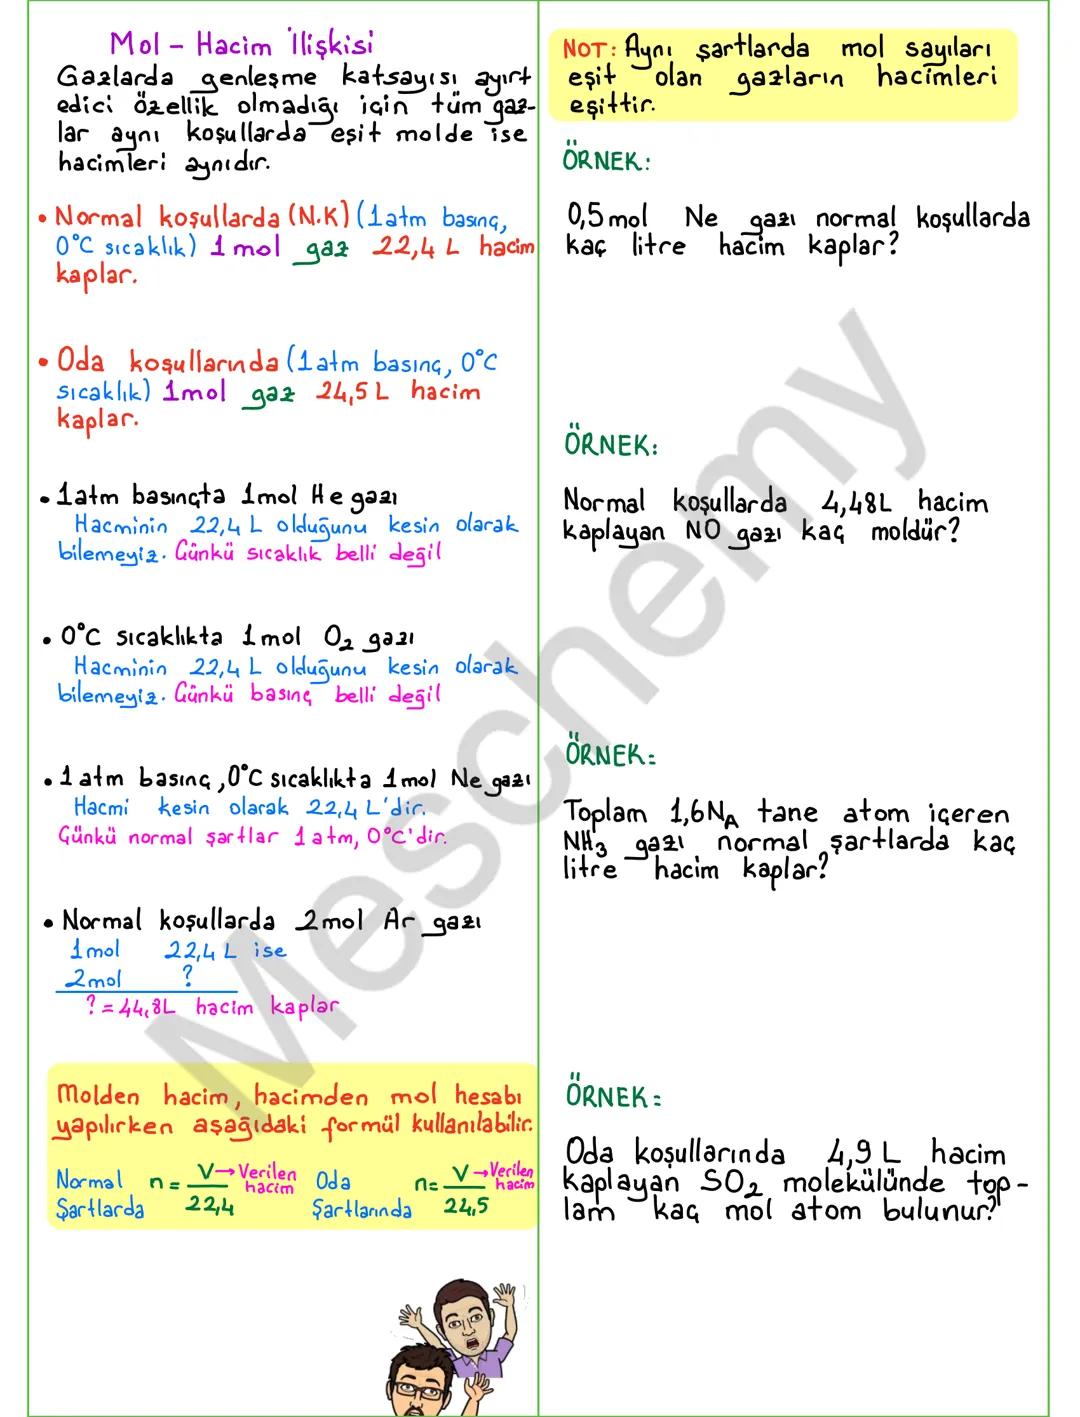 Mol - Hacim İlişkisi
Gazlarda genleşme katsayısı ayırt
edici özellik olmadığı için tüm gaz-
lar aynı koşullarda eşit molde ise
hacimleri aynıdır.
• Normal koşullarda (N.K) (1atm basınç,
0°C sıcaklık) 1 mol gaz 22,4 L hacim
kaplar.
• Oda koşullarında (1atm basınç, 0°C
sıcaklık) 1mol gaz 24,5 L hacim
kaplar.
• 1atm basınçta 1mol He gazı
Hacminin 22,4 L olduğunu kesin olarak
bilemeyiz. Çünkü sıcaklık belli değil
• 0°C sıcaklıkta 1mol O₂ gazı
Hacminin 22,4 L olduğunu kesin olarak
bilemeyiz. Çünkü basınç belli değil
• 1 atm basınç, 0°C sıcaklıkta 1mol Ne gazı
Hacmi kesin olarak 22,4 L'dir.
Çünkü normal şartlar 1atm, 0°C'dir.
• Normal koşullarda 2mol Ar gazı
1mol 22,4 L ise
2mol ?
? = 44,8L hacim kaplar
Molden hacim, hacimden mol hesabı
yapılırken aşağıdaki formül kullanılabilir.
Normal Şartlarda n = V/22,4 V→Verilen hacim
Oda Şartlarında n = V/24,5 V→Verilen hacim
NOT: Aynı şartlarda mol sayıları
eşit olan gazların hacimleri
eşittir.
ÖRNEK:
0,5 mol Ne gazı normal koşullarda
kaç litre hacim kaplar?
ÖRNEK:
Normal koşullarda 4,48L hacim
kaplayan NO gazı kaç moldür?
ÖRNEK:
Toplam 1,6NA tane atom içeren
NH₃ gazı normal şartlarda kaç
litre hacim kaplar?
ÖRNEK:
Oda koşullarında 4,9 L hacim
kaplayan SO₂ molekülünde top-
lam kaç mol atom bulunur?
Meschemy